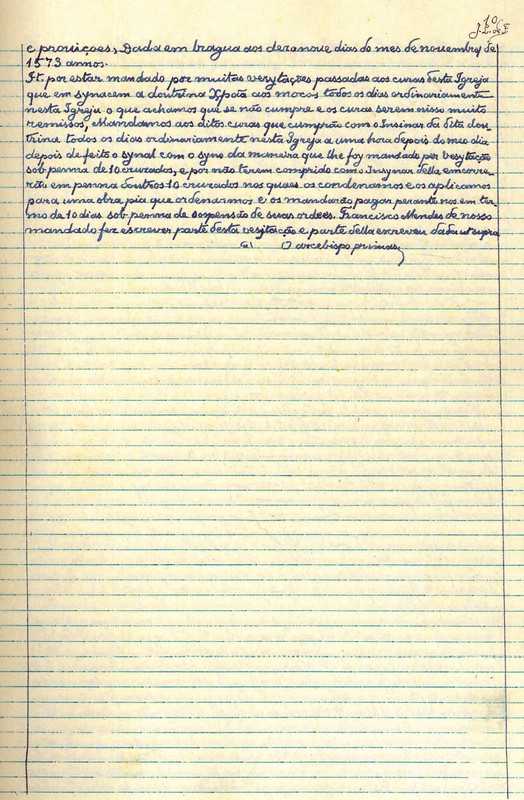 10
e prouiçoes, Dada em bragua aos dezanoue dias do mes de nouembro de
1573 annos.
It. por estar mandado por muitas vesytações passadas aos curas desta Igreja
que em synacem a doutrina Xpotã aos moços todos os dias ordinariamente
nesta Igreja o que achamos que se não cumpre e os curas serem nisso muito
remissos, Mandamos aos ditos curas que cumprão com o Insinar da dita dou-
trina todos os dias ordinariamente nesta Igreja a uma hora depois do meo dia
depois de feito o synal com o syno da maneira que lhe foy mandado per vesytação
sob penna de 10 cruzados, e por não terem comprido com o Insynar della emcorre-
rão em penna doutros 10 cruzados nos quaes os condenamos e os aplicamos
para uma obra pia que ordenarmos e os mandarão pagar perante nos em ter-
mo de 10 dias sob penna de suspensão de suas ordẽs. Francisco Mendes de nosso
mandado fez escrever parte desta vesitação e parte della escreveu dada ut supra
a) O arcebispo primas,